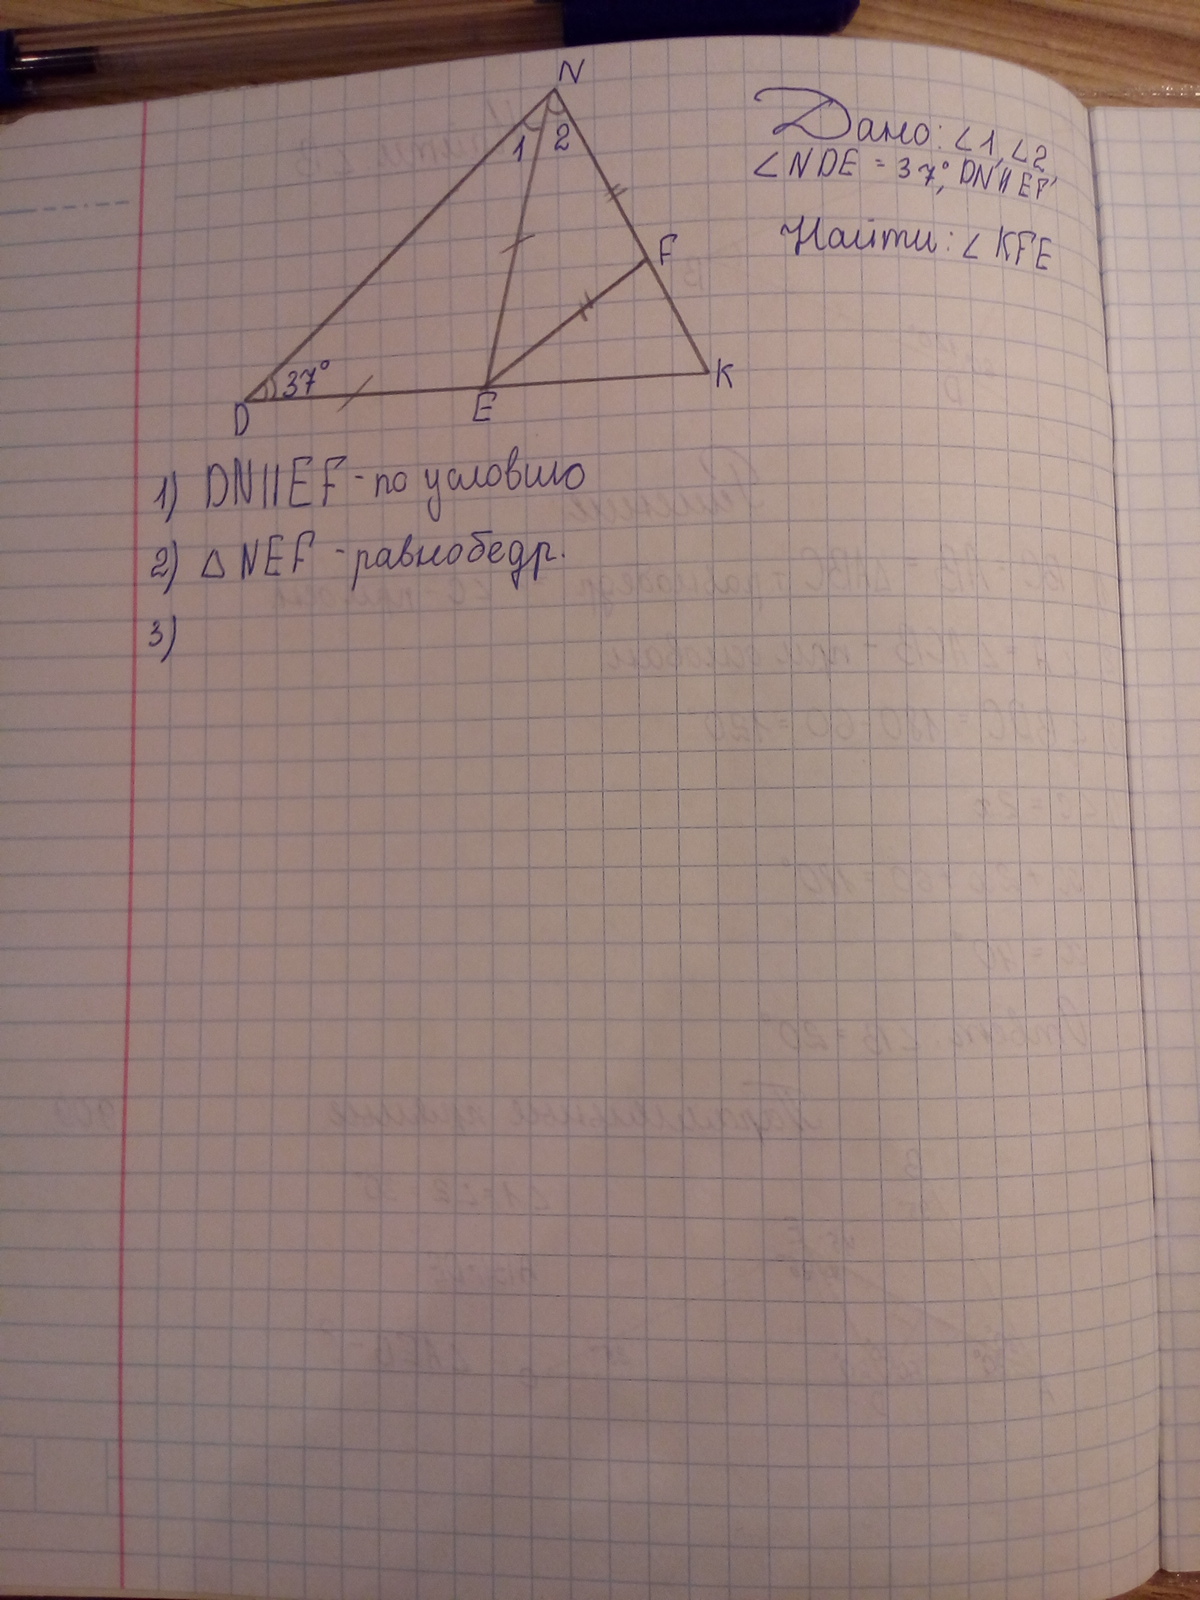 N
1 2
Дано: ∠1, ∠2
∠NDE = 37°, DN || EF
Найти: ∠KFE
F
37°
K
D
E
1) DN || EF - по условию
2) △ NEF - равнобедр.
3)